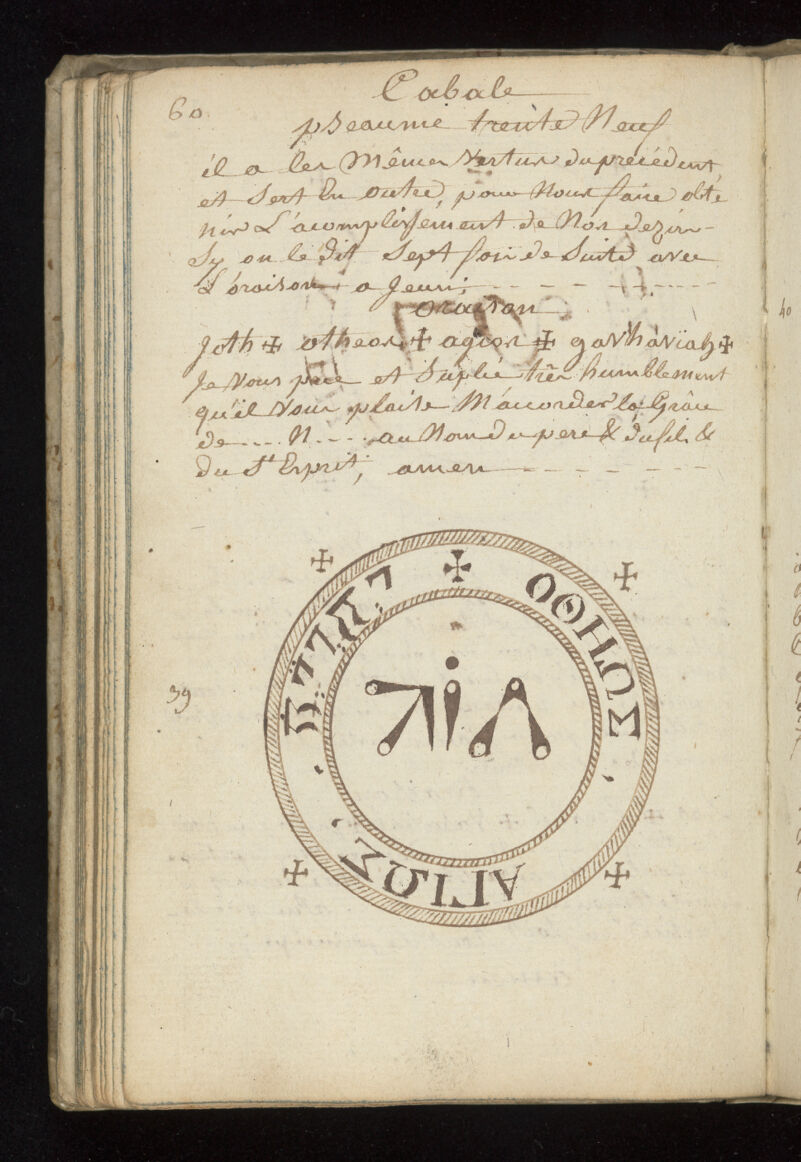 60
Cabale
pseaume trente Neuf
il a les Mêmes Vertus du précédent
et Sert En outre, pour Nous faire obte
nir L'acomplissement de Nos dezirs-
Sy on le dit Sept fois de Suite avec
L'oraison a Jeun;
oraison
Joth ✠ otheos ✠ agios ✠ gavhaviah ✠
Je Vous prie et Suplie très humblement
qu'il Vous plaise M'accorder la Grâce
de .... N .... au Nom du pere & du fils &
du St Esprit, amen
ΟΘΗΩΣ .
ΑΓΙΩΣ .
39